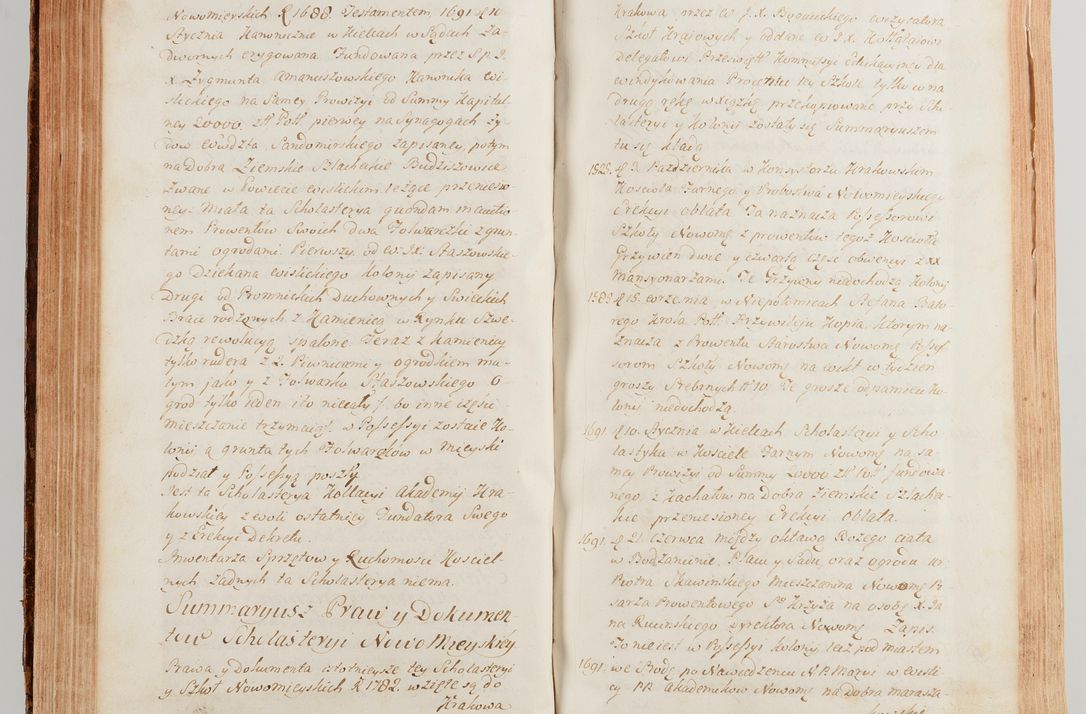 Nowomieyskich R 1688. Testamentem, 1691 R 10
Stycznia Kanonicznie w Kielcach w Sądach Za-
dwornych erygowana Fundowana przez S. p. J.
X. Zygmunta Amanuszowskiego Kanonika Wi-
slickiego na Samey Prowizyi od Summy Kapital-
ney 20000. zł Pol. pierwey na Synagogach Ży-
dow Ewdzta Sandomirskiego zapisaney, potym
na Dobra Ziemskie Szlacheckie Budziszowice
zwane w Powiecie Wislickim leżące przeniesio-
ney. Miała ta Scholasterya quondam in
nem Prowentow Swoich dwa Folwarczki z grun-
tami ogrodami. Pierwszy od W. Jx. Staszowskie-
go Dziekana Wislickiego kolonij zapisany
Drugi od Promnickich Duchownych y Swieckich
Braci rodzonych z Kamienicą w Rynku Szwe-
dzką rewolucyą spalone Teraz z kamienicy
tylko rudera z 2. Piwnicami y ogrodkiem ma-
łym jako y z Folwarku Staszowskiego O-
grod tylko ieden, i to niecały, bo inne części
mieszczanie trzymaią, w Possessyi zostaie Ko-
lonij a grunta tych Folwarkow w Mieyski
podział y Possessyą poszły
Jest ta Scholasterya Kollacyi Akademij Kra-
kowskiey z woli ostatniey Fundatora Swego
y z Erekcyi Dekretu.
Inwentarza Sprzętow y Ruchomości Kosciel-
nych żadnych ta Scholasterya niema.
Summaryusz Praw y Dokumen-
tow Scholasteryi Nowo Mieyskiey
Prawa y dokumenta istotnieysze tey Scholasteryi
y Szkoł Nowomieyskich R 1782. wzięte są do
Krakowa
Krakowa przez W. J. X. Bogucickiego Wizytatora
Szkoł Krajowych y oddane W. J. X. Kołłątaiowi
Delegatowi Przeswięt. Kommissyi Edukacyiney dla
windykowania Procentu tey Szkole tylko w na
drugą rękę w xiążkę przekopiowane przy Scho-
lasteryi y Kolonij zostały się Summaryuszem
tu się kładą
1525. R 3. Października w Konsystorzu Krakowskim
Kosciola Farnego y Probostwa Nowomieyskiego
Erekcyi oblata Ta naznacza Possessorowi
Szkoły Nowom. z prowentow tegoż Koscioła
Grzywien dwie y czwartą część obwencyi z XX
Mansyonarzami. Te Grzywny niedochodzą Kolonij
1585 R 18. Wrzesnia w Niepołomicach Stefana Bato-
rego Krola Pol. Przywileju Kopia, ktorym na-
znacza z Prowentu Starostwa Nowom. Posses-
sorom Szkoły Nowom. na wikt w tydzień
groszy Srebrnych No 10. Te grosze od pamięci Ko-
lonij niedochodzą
1691 R 10. Stycznia w Kielcach Scholasteryi y Scho-
lastyka w Kosciele Farnym Nowom. na sa-
mey Prowizyi od Summy 20000 zł Pol. fundowa-
nego z Kachałow na Dobra Ziemskie Szlache-
ckie przeniesioney Erekcyi Oblata.
1691. R 21 Czerwca między oktawą Bożego ciała
w Bodzancinie. Placu y Sadu, oraz ogrodu W.
Piotra Skawinskiego Mieszczanina Nowom. Pi-
sarza Prowentowego So Krzyża na osoby X. Ja-
na Rucinskiego Dyrektora Nowom. Zapis.
To niejest w Possessyi Kolonij leży pod miastem
1691. we Srodę po Nawiedzeniu N. P. Maryi w Wisli-
cy PP. Akademikow Nowom. na dobra Marasza-